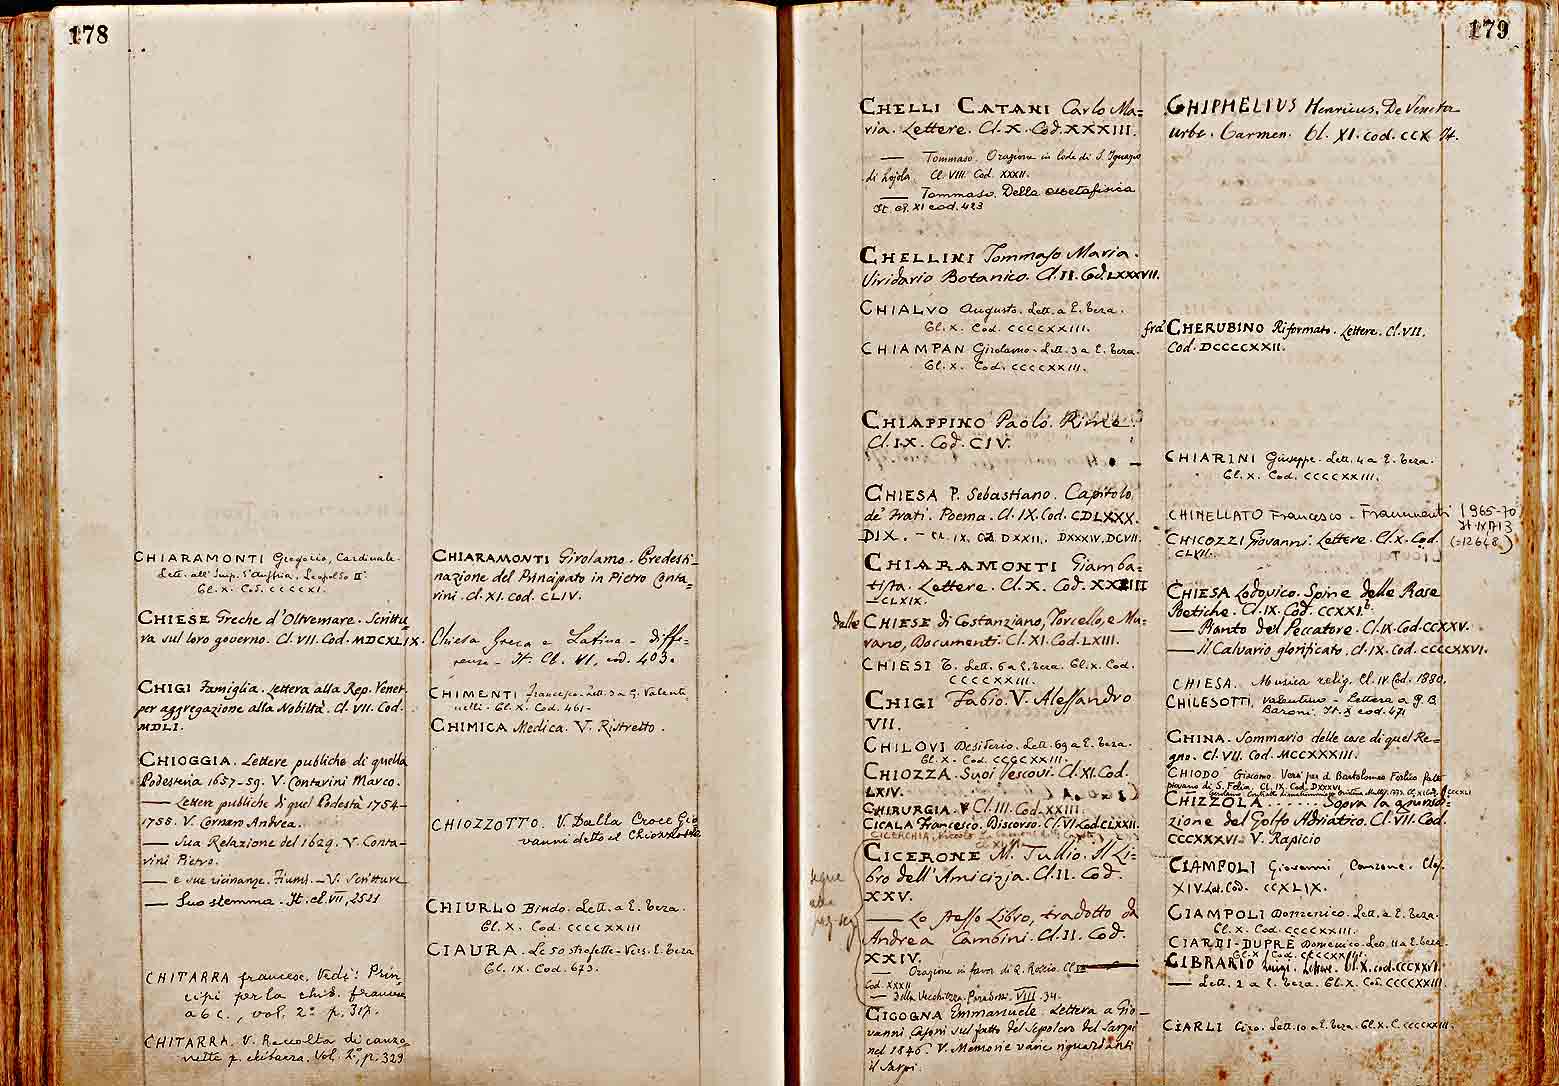 178
CHIARAMONTI Gregorio, Cardinale.
Lett. all' Imp. d'Austria, Leopoldo II°.
Cl. X. Cod. CCCCXI.
CHIESE Greche d'Oltremare. Scrittu=
ra sul loro governo. Cl. VII. Cod. MDCXLIX.
CHIGI Famiglia. Lettera alla Rep. Venet.
per aggregazione alla Nobiltà. Cl. VII. Cod.
MDLI.
CHIOGGIA. Lettere publiche di quella
Podesteria 1657-59. V. Contarini Marco.
— Lettere publiche di quel Podestà 1754-
1756. V. Cornaro Andrea.
— Sua Relazione del 1629. V. Conta-
rini Pietro.
— e sue vicinanze. Fiumi. — V. Scritture
— Suo stemma. It. cl. VII, 2511
CHITARRA francese. Vedi: Prin
cipi per la chit. francese
a 6 c., vol. 2° p. 317.
CHITARRA. V. Raccolta di canzo
nette p. chitarra. Vol. 2°, p. 329
CHIARAMONTI Girolamo. Predesti-
nazione del Principato in Pietro Conta=
rini. Cl. XI. cod. CLIV.
Chiesa Greca e Latina - diffe-
renze - It. Cl. VI, cod. 403.
CHIMENTI Francesco. Lett. 3 a G. Valenti
nelli. Cl. X. Cod. 461-
CHIMICA Medica. V. Ristretto.
CHIOZZOTTO. V. Dalla Croce Gio
vanni detto el Chiozzotto
CHIURLO Bindo. Lett. a E. Teza.
Cl. X. Cod. CCCCXXIII
CIAURA. Le 50 strofette. Vers. E. Teza
Cl. IX. Cod. 673.
179
CHELLI CATANI Carlo Ma=
ria. Lettere. Cl. X. Cod. XXXIII.
— Tommaso. Orazione in lode di S. Ignazio
di Lojola. Cl. VIII. Cod. XXXII.
— Tommaso. Della Metafisica
It. cl. XI cod. 423
CHELLINI Tommaso Maria.
Viridario Botanico. Cl. II. Cod. LXXXVII.
CHIALVO Augusto. Lett. a E. Teza.
Cl. X. Cod. CCCCXXIII.
CHIAMPAN Girolamo. Lett. 3 a E. Teza.
Cl. X. Cod. CCCCXXIII.
CHIAPPINO Paolo. Rime.
Cl. IX. Cod. CIV.
CHIESA P. Sebastiano. Capitolo
de' Frati. Poema. Cl. IX. Cod. CDLXXX.
DIX. - Cl. IX. Cod. DXXII. DXXXIV. DCVII.
CHIARAMONTI Giamba=
tista. Lettere. Cl. X. Cod. XXIII
— CLXIX.
dalle CHIESE di Costanziano, Torcello, e Mu=
rano, Documenti. Cl. XI. Cod. LXIII.
CHIESI T. Lett. 6 a E. Teza. Cl. X. Cod.
CCCCXXIII.
CHIGI Fabio. V. Alessandro
VII.
CHILOVI Desiderio. Lett. 69 a E. Teza.
Cl. X. Cod. CCCCXXIII.
CHIOZZA. Suoi Vescovi. Cl. XI. Cod.
LXIV.
CHIRURGIA. V. Cl. III. Cod. XXIII.
CICALA Francesco. Discorso. Cl. VI. Cod. CLXXII.
CICERCHIA Niccolò
CICERONE M. Tullio. Il Li=
bro dell'Amicizia. Cl. II. Cod.
XXV.
— Lo stesso Libro, tradotto da
Andrea Cambini. Cl. II. Cod.
XXIV.
— Orazione in favor di Q. Roscio. Cl. IX
Cod. XXXII
— Della Vecchiezza. Paradossi. VIII. 34.
segue
alla
pag. seg.
CICOGNA Emmanuele. Lettera a Gio-
vanni Casoni sul fatto del Sepolcro del Sarpi
nel 1846. V. Memorie varie riguardanti
il Sarpi.
CHIPHELIUS Henricus. De Veneta
urbe. Carmen. Cl. XI. cod. CCX 74.
fra CHERUBINO Riformato. Lettere. Cl. VII.
Cod. DCCCCXXII.
CHIARINI Giuseppe. Lett. 4 a E. Teza.
Cl. X. Cod. CCCCXXIII.
CHINELLATO Francesco - Frammenti 1965-70
(=12648)
CHICOZZI Giovanni. Lettere. Cl. X. Cod.
CLVII.
CHIESA Lodovico. Spine delle Rose
Poetiche. Cl. IX. Cod. CCXXI.
— Pianto del Peccatore. Cl. IX. Cod. CCXXV.
— Il Calvario glorificato. Cl. IX. Cod. CCCCXXVI.
CHIESA. Musica relig. Cl. IV. Cod. 1880.
CHILESOTTI, Valentino - Lettera a G. B.
Baroni. It. X cod. 471
CHINA. Sommario delle cose di quel Re=
gno. Cl. VII. Cod. MCCXXXIII.
CHIODO Giacomo. Versi per d. Bartolomeo
piovano di S. Cl. IX. Cod. DXXXVI.
CHIZZOLA ...... Sopra la giurisdi=
zione del Golfo Adriatico. Cl. VII. Cod.
CCCXXXVI. V. Rapicio
CIAMPOLI Giovanni, Canzone. Clas.
XIV. Lat. Cod. CCXLIX.
CIAMPOLI Domenico. Lett. a E. Teza.
Cl. X. Cod. CCCCXXIII.
CIARDI-DUPRÉ Domenico. Lett. 11 a E. Teza.
Cl. X. Cod. CCCCXXIII.
CIBRARIO Luigi. Lettere. Cl. X. cod. CCCXXVI.
— Lett. 2 a E. Teza. Cl. X. Cod. CCCCXXIII.
CIARLI Ciro. Lett. 10 a E. Teza. Cl. X. C. CCCCXXIII.